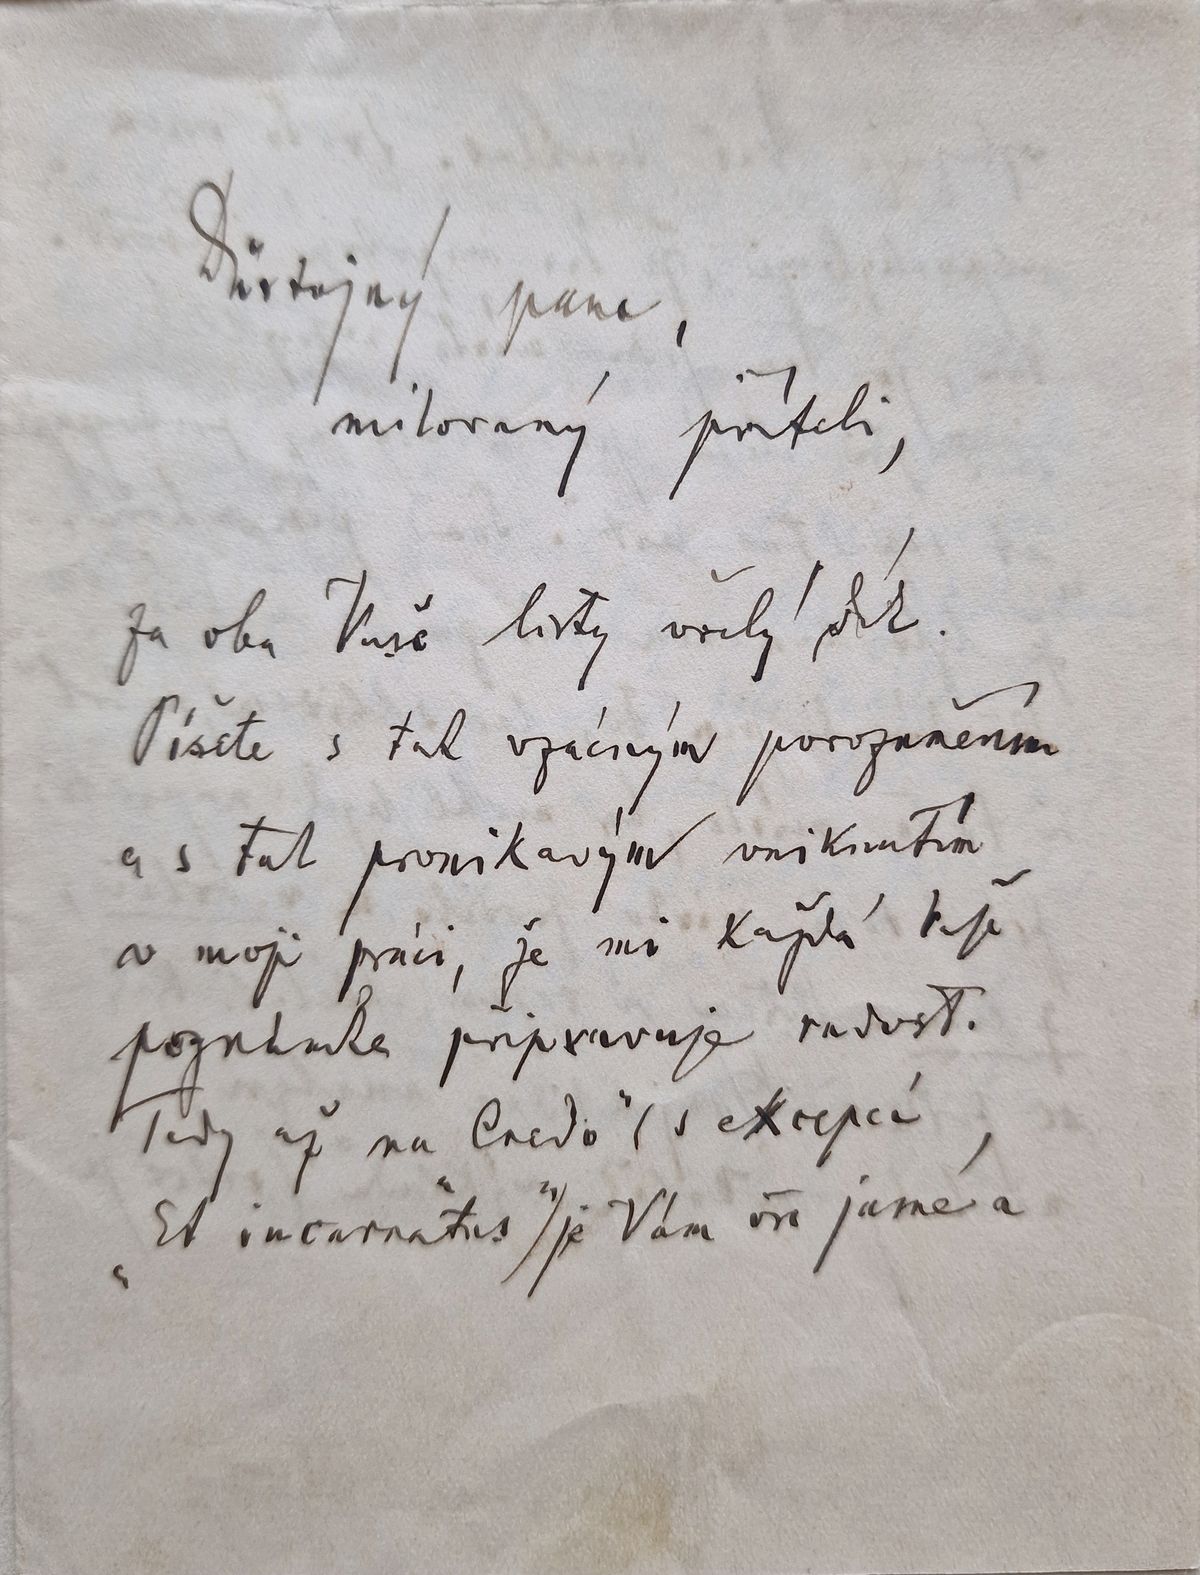 Důstojný pane,
milovaný příteli,
za oba Vaše listy vřelý dík.
Píšete s tak vzácným porozuměním
a s tak pronikavým vniknutím
v moji práci, že mi každá Vaše
poznámka připravuje radost.
Tedy až na Credo" (s exepcí
„Et incarnatus") je Vám vše jasné a